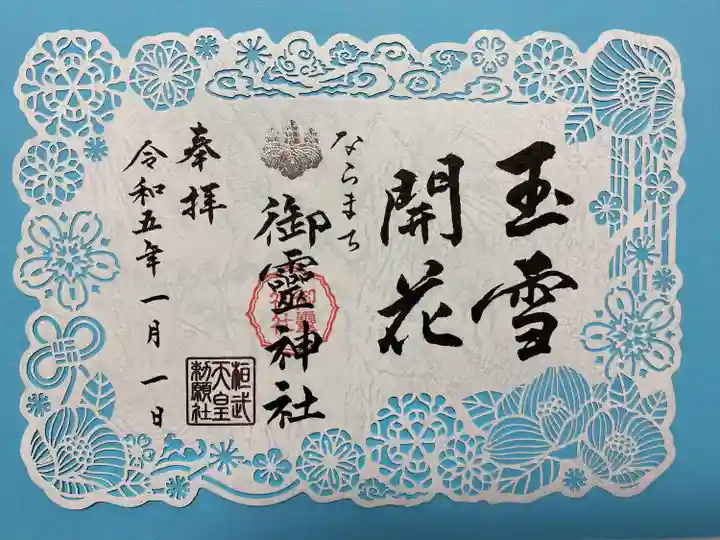 玉雪
開花
ならまち
御靈神社
奉拝
令和五年一月一日
桓武
天皇
勅願社